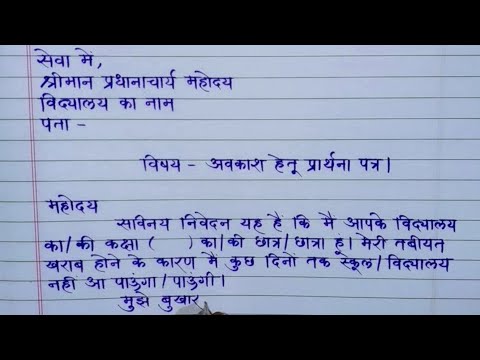 सेवा में,
श्रीमान प्रधानाचार्य महोदय
विद्यालय का नाम
पता -
विषय - अवकाश हेतू प्रार्थना पत्र।
महोदय
सविनय निवेदन यह हैं कि मै आपके विद्यालय
का/की कक्षा ( ) का/की छात्र/छात्रा हूं। मेरी तबीयत
खराब होने के कारण मैं कुछ दिनो तक स्कूल/विद्यालय
नही आ पाऊंगा/पाऊंगी।
मुझे बुखार